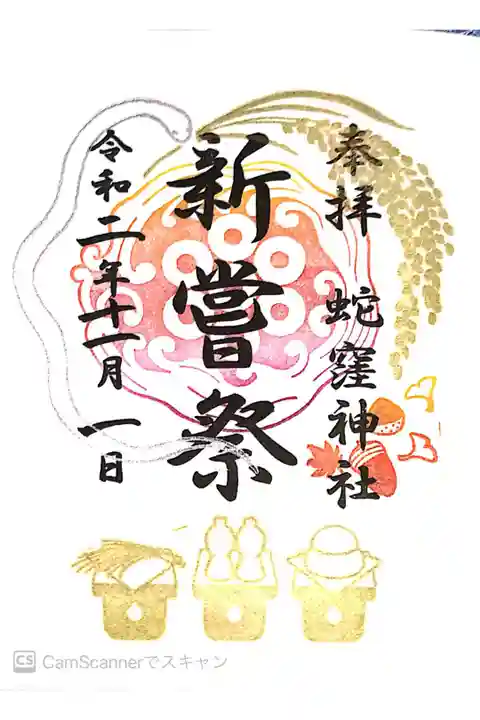 奉拝 蛇窪神社
新嘗祭
令和二年十一月一日
CS CamScannerでスキャン